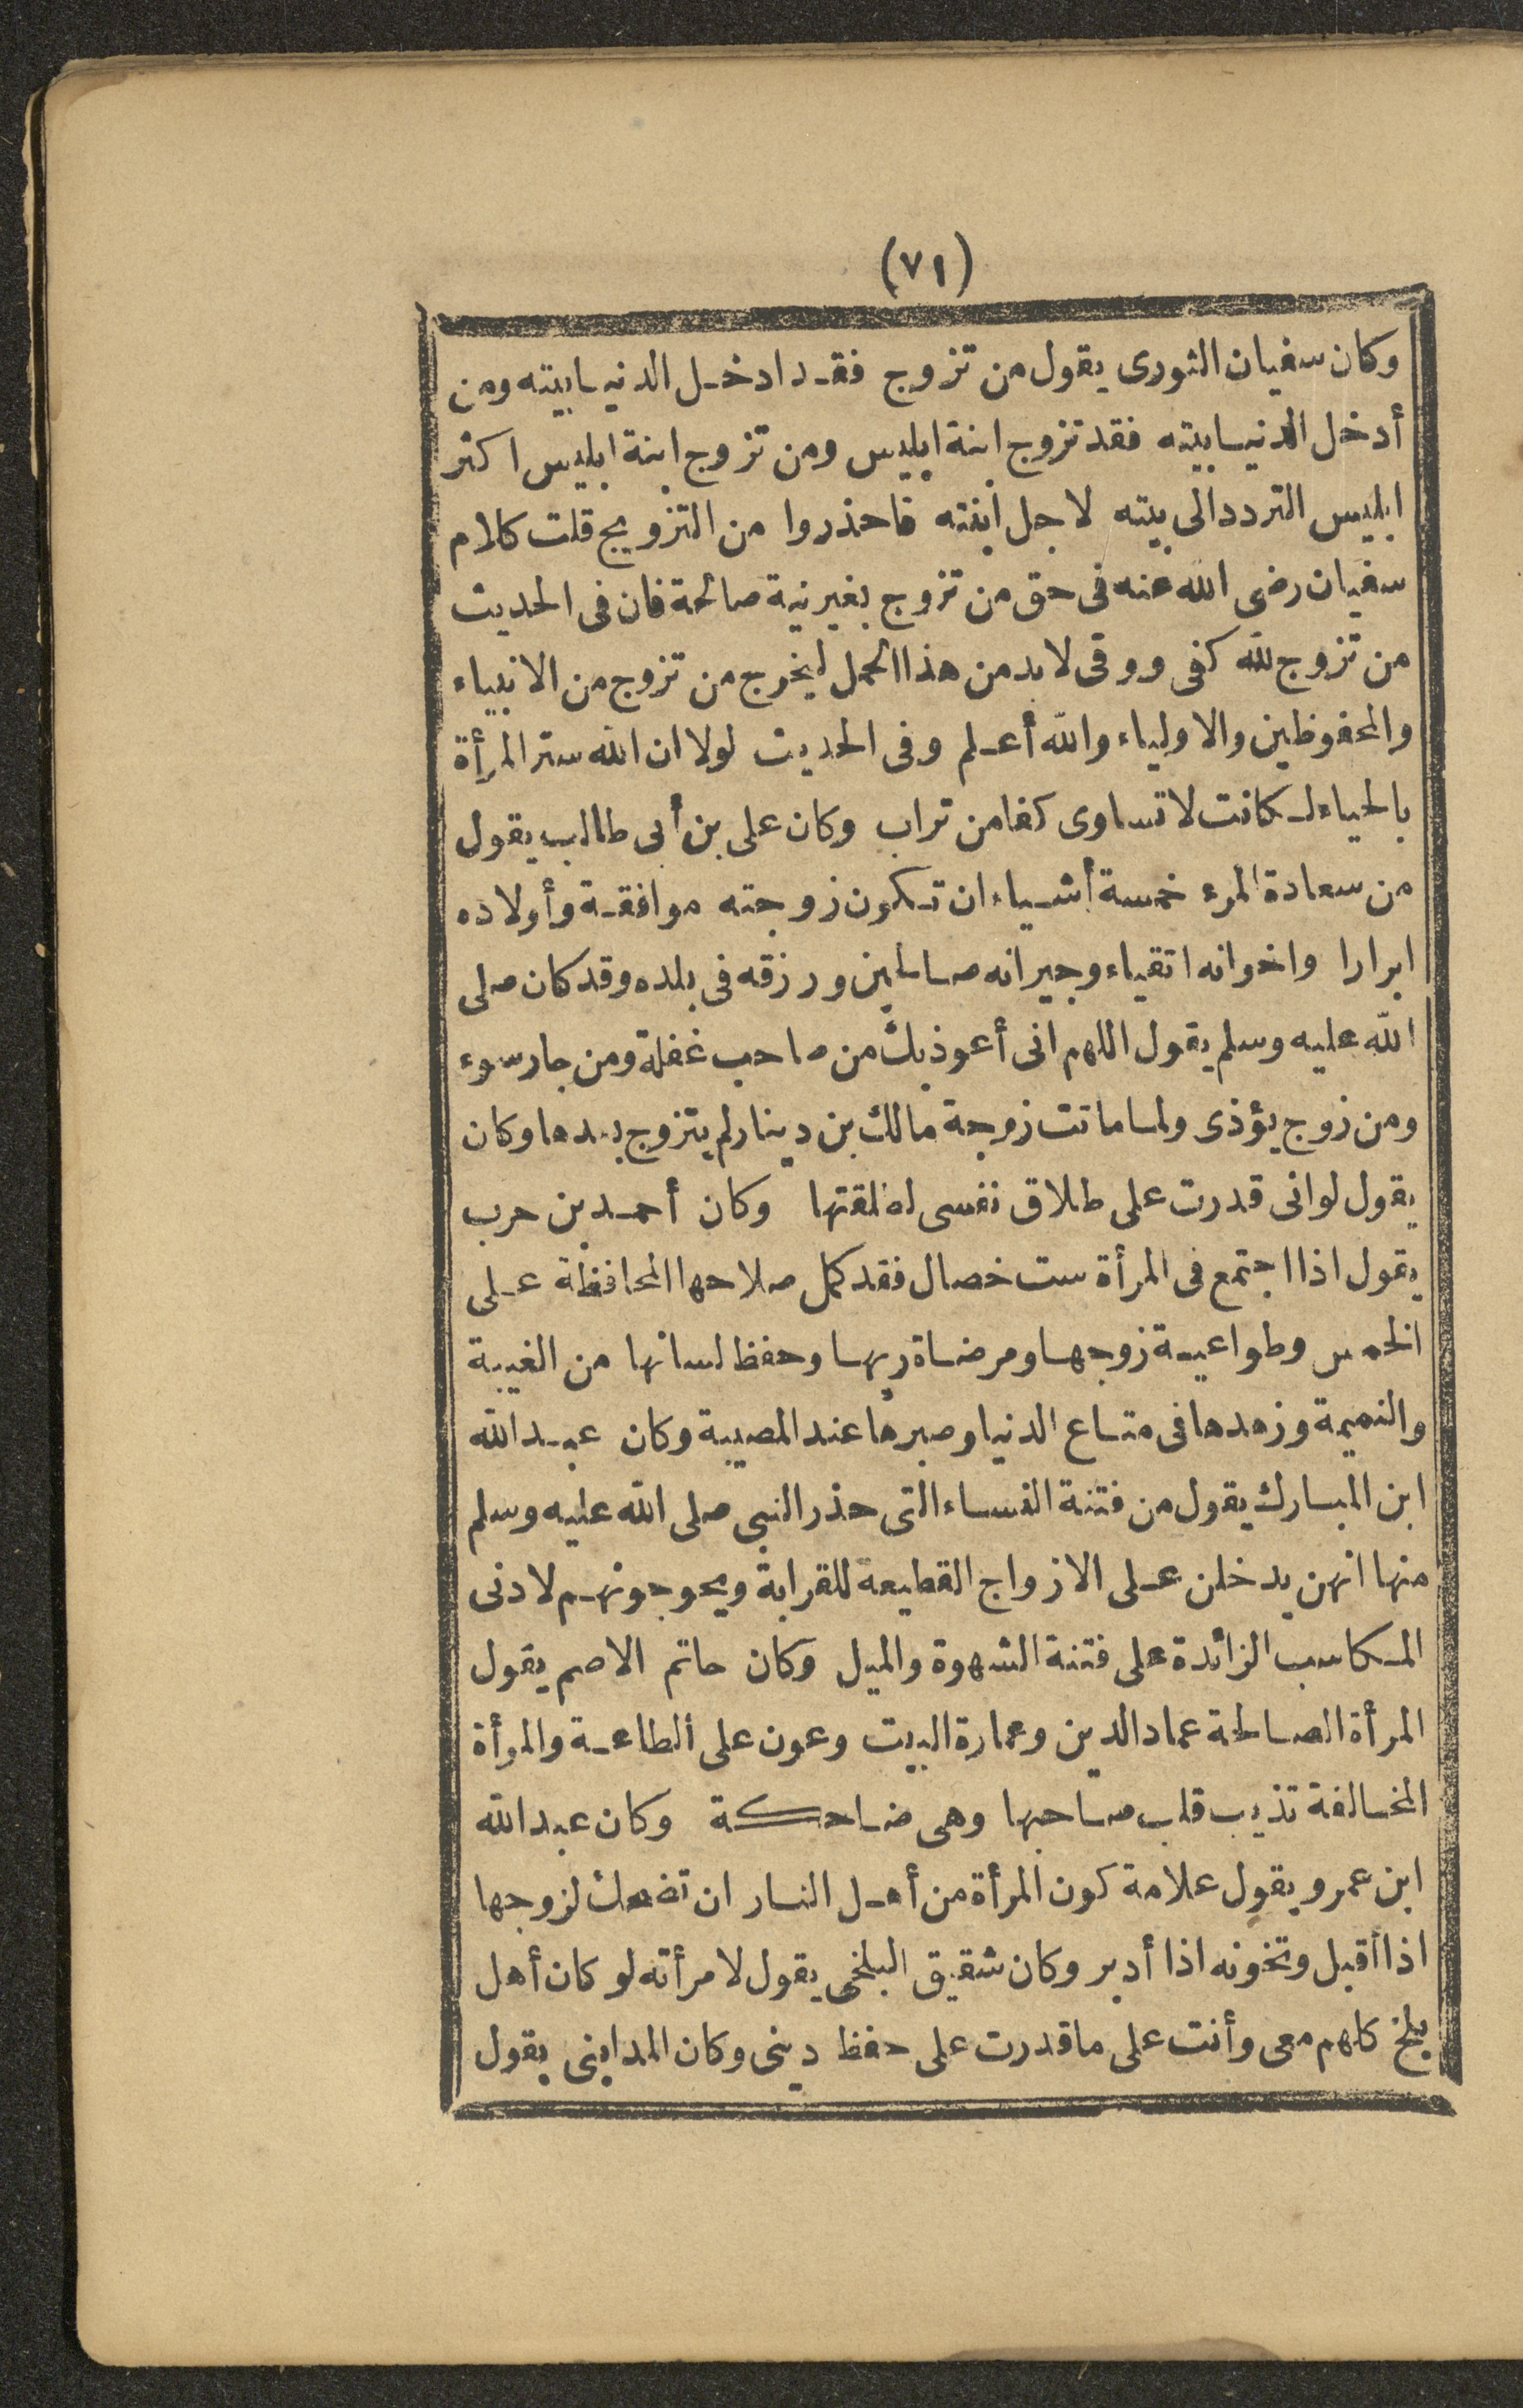 (٧١)
وكان سفيان الثورى يقول من تزوج فقد ادخل الدنيا بيته ومن
أدخل الدنيا بيته فقد تزوج ابنة ابليس ومن تزوج ابنة ابليس اكثر
ابليس التردد الى بيته لاجل ابنته فاحذروا من التزويج قلت كلام
سفيان رضى الله عنه فى حق من تزوج بغير نية صالحة فان فى الحديث
من تزوج لله كفى ووقى لابد من هذا الحمل ليخرج من تزوج من الانبياء
والمحفوظين والاولياء والله أعلم وفى الحديث لولا ان الله ستر المرأة
بالحياء لكانت لا تساوى كفا من تراب وكان على بن أبى طالب يقول
من سعادة المرء خمسة أشياء ان تكون زوجته موافقة وأولاده
ابرارا واخوانه اتقياء وجيرانه صالحين ورزقه فى بلده وقد كان صلى
الله عليه وسلم يقول اللهم انى أعوذ بك من صاحب غفلة ومن جار سوء
ومن زوج يؤذى ولما ماتت زوجة مالك بن دينار لم يتزوج بعدها وكان
يقول لو انى قدرت على طلاق نفسى لطلقتها وكان أحمد بن حرب
يقول اذا اجتمع فى المرأة ست خصال فقد كمل صلاحها المحافظة على
الخمس وطواعية زوجها ومرضاة ربها وحفظ لسانها من الغيبة
والنميمة وزهدها فى متاع الدنيا وصبرها عند المصيبة وكان عبد الله
ابن المبارك يقول من فتنة النساء التى حذر النبى صلى الله عليه وسلم
منها انهن يدخلن على الازواج القطيعة للقرابة ويحوجونهم لادنى
المكاسب الزائدة على فتنة الشهوة والميل وكان حاتم الاصم يقول
المرأة الصالحة عماد الدين وعمارة البيت وعون على الطاعة والمرأة
المخالفة تذيب قلب صاحبها وهى ضاحكة وكان عبد الله
ابن عمرو يقول علامة كون المرأة من أهل النار ان تضحك لزوجها
اذا أقبل وتخونه اذا أدبر وكان شقيق البلخى يقول لامرأته لو كان أهل
بلخ كلهم معى وأنت على ما قدرت على حفظ دينى وكان المداينى يقول